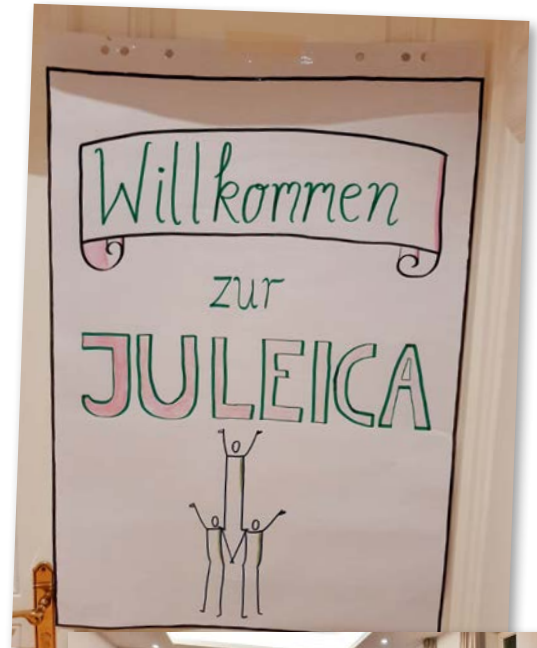 Willkommen
zur
JULEICA